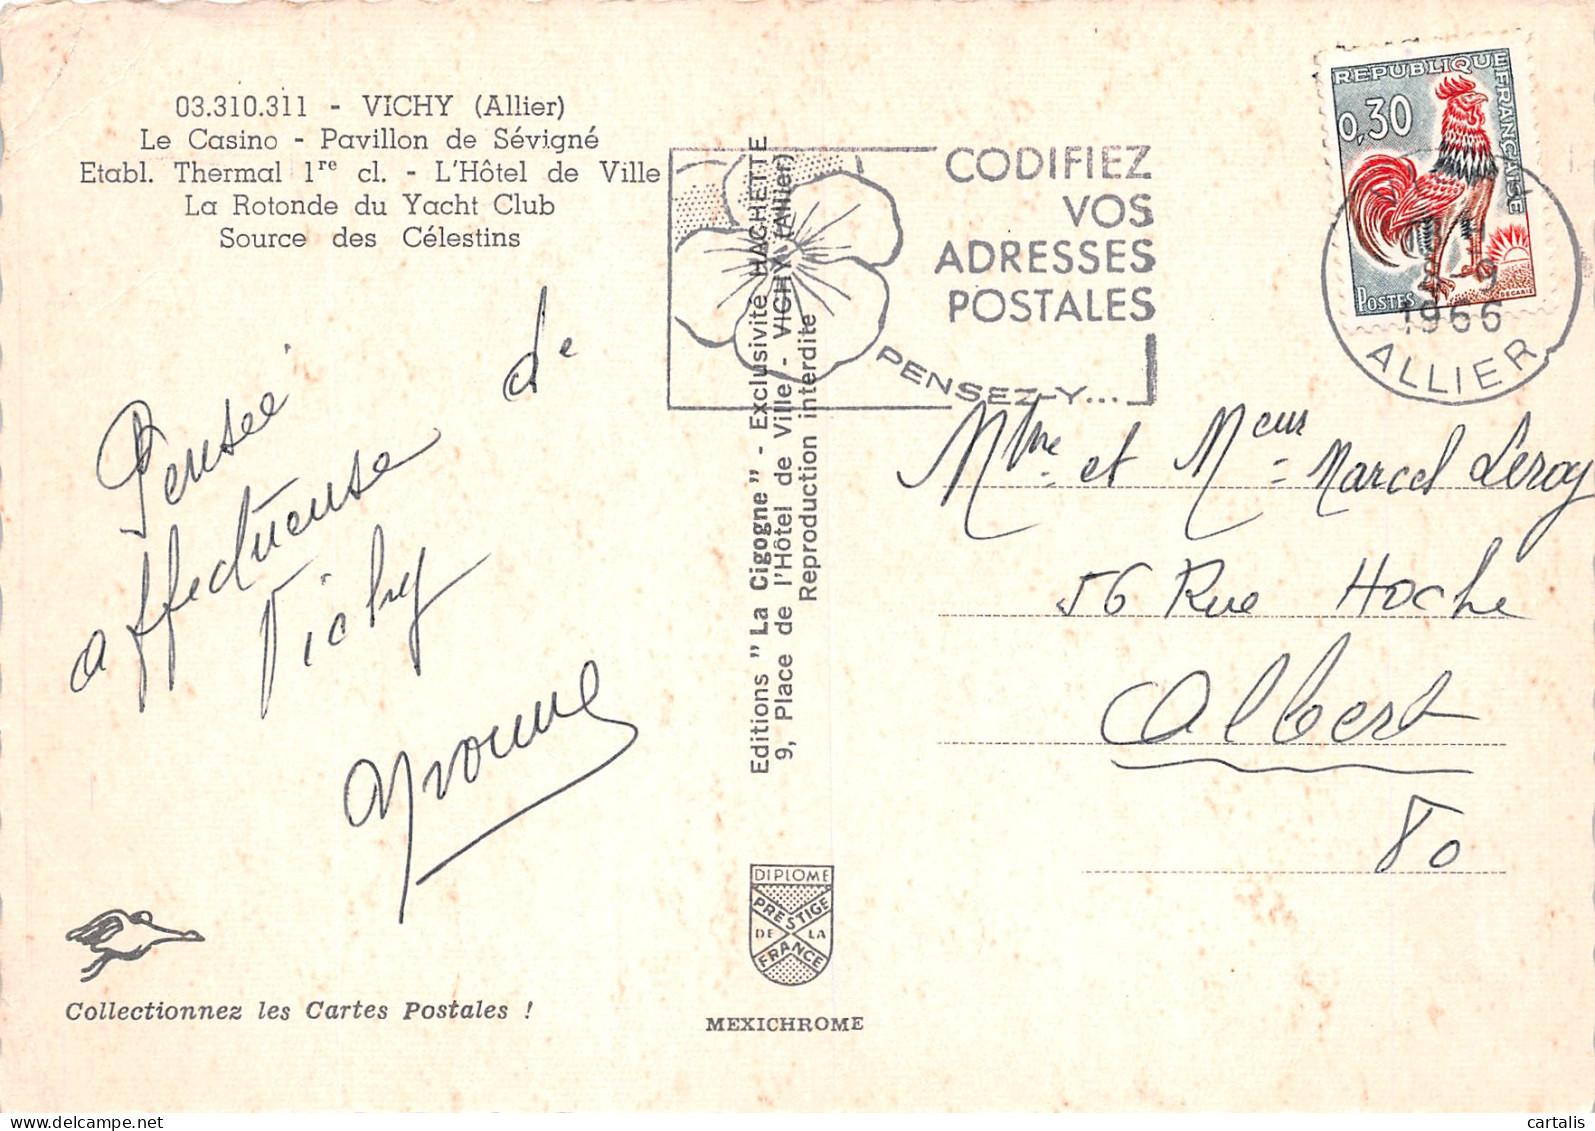 03.310.311 - VICHY (Allier)
Le Casino - Pavillon de Sévigné
Etabl. Thermal 1re cl. - L'Hôtel de Ville
La Rotonde du Yacht Club
Source des Célestins
Pensée
affectueuse de
Vichy
Yvonne
Collectionnez les Cartes Postales !
Editions "La Cigogne" - Exclusivité HACHETTE
9, Place de l'Hôtel de Ville - VICHY (Allier)
Reproduction interdite
DIPLOME
PRESTIGE
DE LA
FRANCE
MEXICHROME
CODIFIEZ
VOS
ADRESSES
POSTALES
PENSEZ-Y...
REPUBLIQUE FRANÇAISE
0,30
POSTES
DECARIS
-9
1966
ALLIER
Mme et Meur Marcel Leroy
56 Rue Hoche
Albert
80
cartalis
delcampe.net